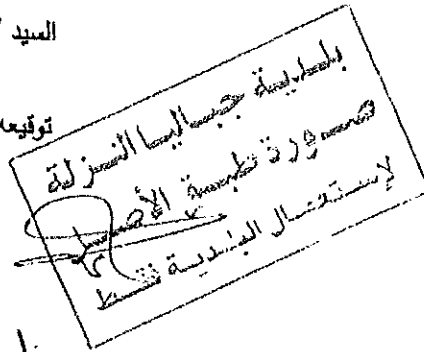 السيد
توقيعه
بلدية جباليا النزلة
صورة طبق الأصل
لإستعمال البلدية فقط